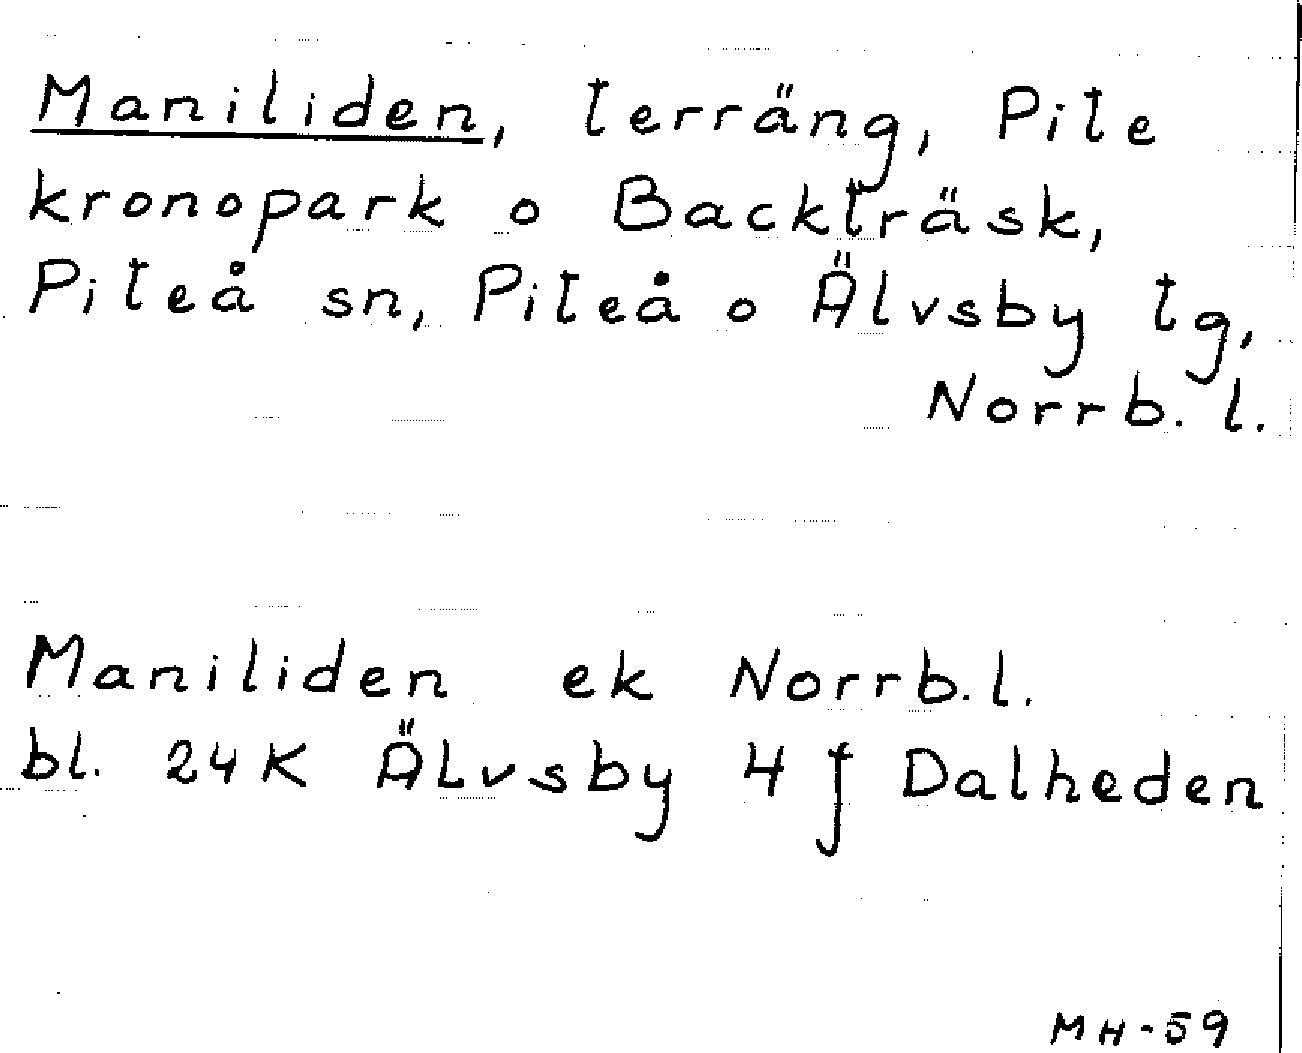 Maniliden, terräng, Pite
kronopark o Backträsk,
Piteå sn, Piteå o Älvsby tg,
Norrb. l.
Maniliden ek Norrb. l.
bl. 24K Älvsby 4 f Dalheden
MH-59